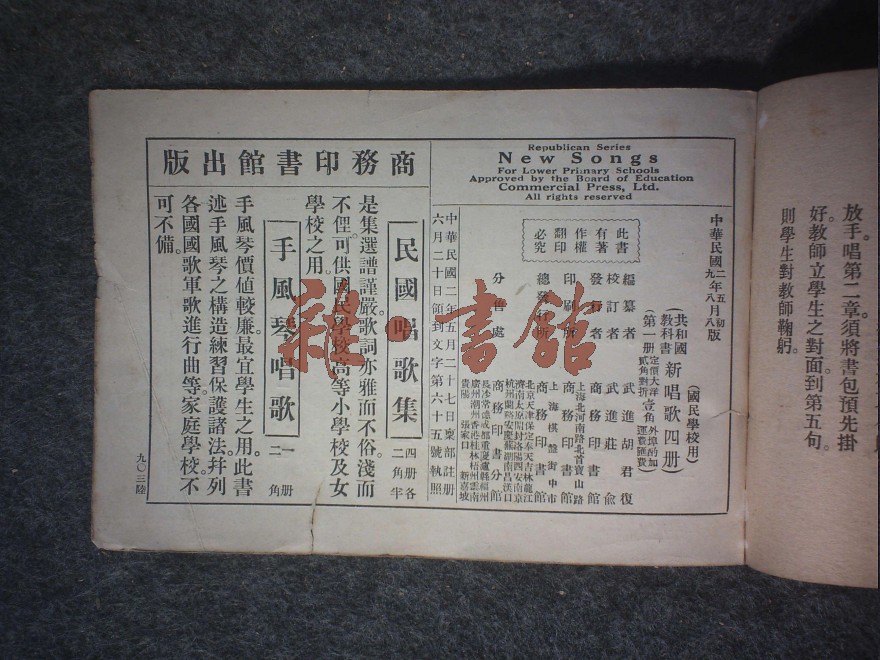 放手。唱第二章。須將書包預先掛
好。教師立學生之對面。到第五句。
則學生對教師鞠躬。
Republican Series
New Songs
For Lower Primary Schools
Approved by the Board of Education
Commercial Press, Ltd.
All rights reserved
中華民國二年五月初版
九年八月八版
(國民學校用)
共和國教科書 新唱歌四册
(第一册定價大洋壹角
貳角對折 外埠酌加運費匯費)
編纂者 武進胡君復
校訂者 武進莊俞
發行者 商務印書館
上海北河南路北首寶山路
印刷所 商務印書館
上海棋盤街中市
總發行所 商務印書館
北京天津保定奉天吉林龍江
濟南太原開封洛陽西安南京
杭州蘭谿安慶蕪湖南昌漢口
分售處 商務印書分館
長沙常德成都重慶瀘縣福州
廣州潮州香港桂林梧州雲南
貴陽 張家口 新嘉坡
此書
有著
作權
翻印
必究
中華民國二年五月二十七日稟部註册
六月二十日領到文字第六十五號執照
商務印書館出版
民國唱歌集 四册各二角半
是集選譜謹嚴。歌詞亦雅而不俗。淺而
不俚。可供國民學校高等小學校及女
學校之用。
手風琴唱歌 一册二角
手風琴價值較廉。最宜學生之用。此書
述手風琴之構造練習保護諸法。幷列
各國國歌軍歌進行曲等。家庭學校。不
可不備。
九〇三陸
雜·書館